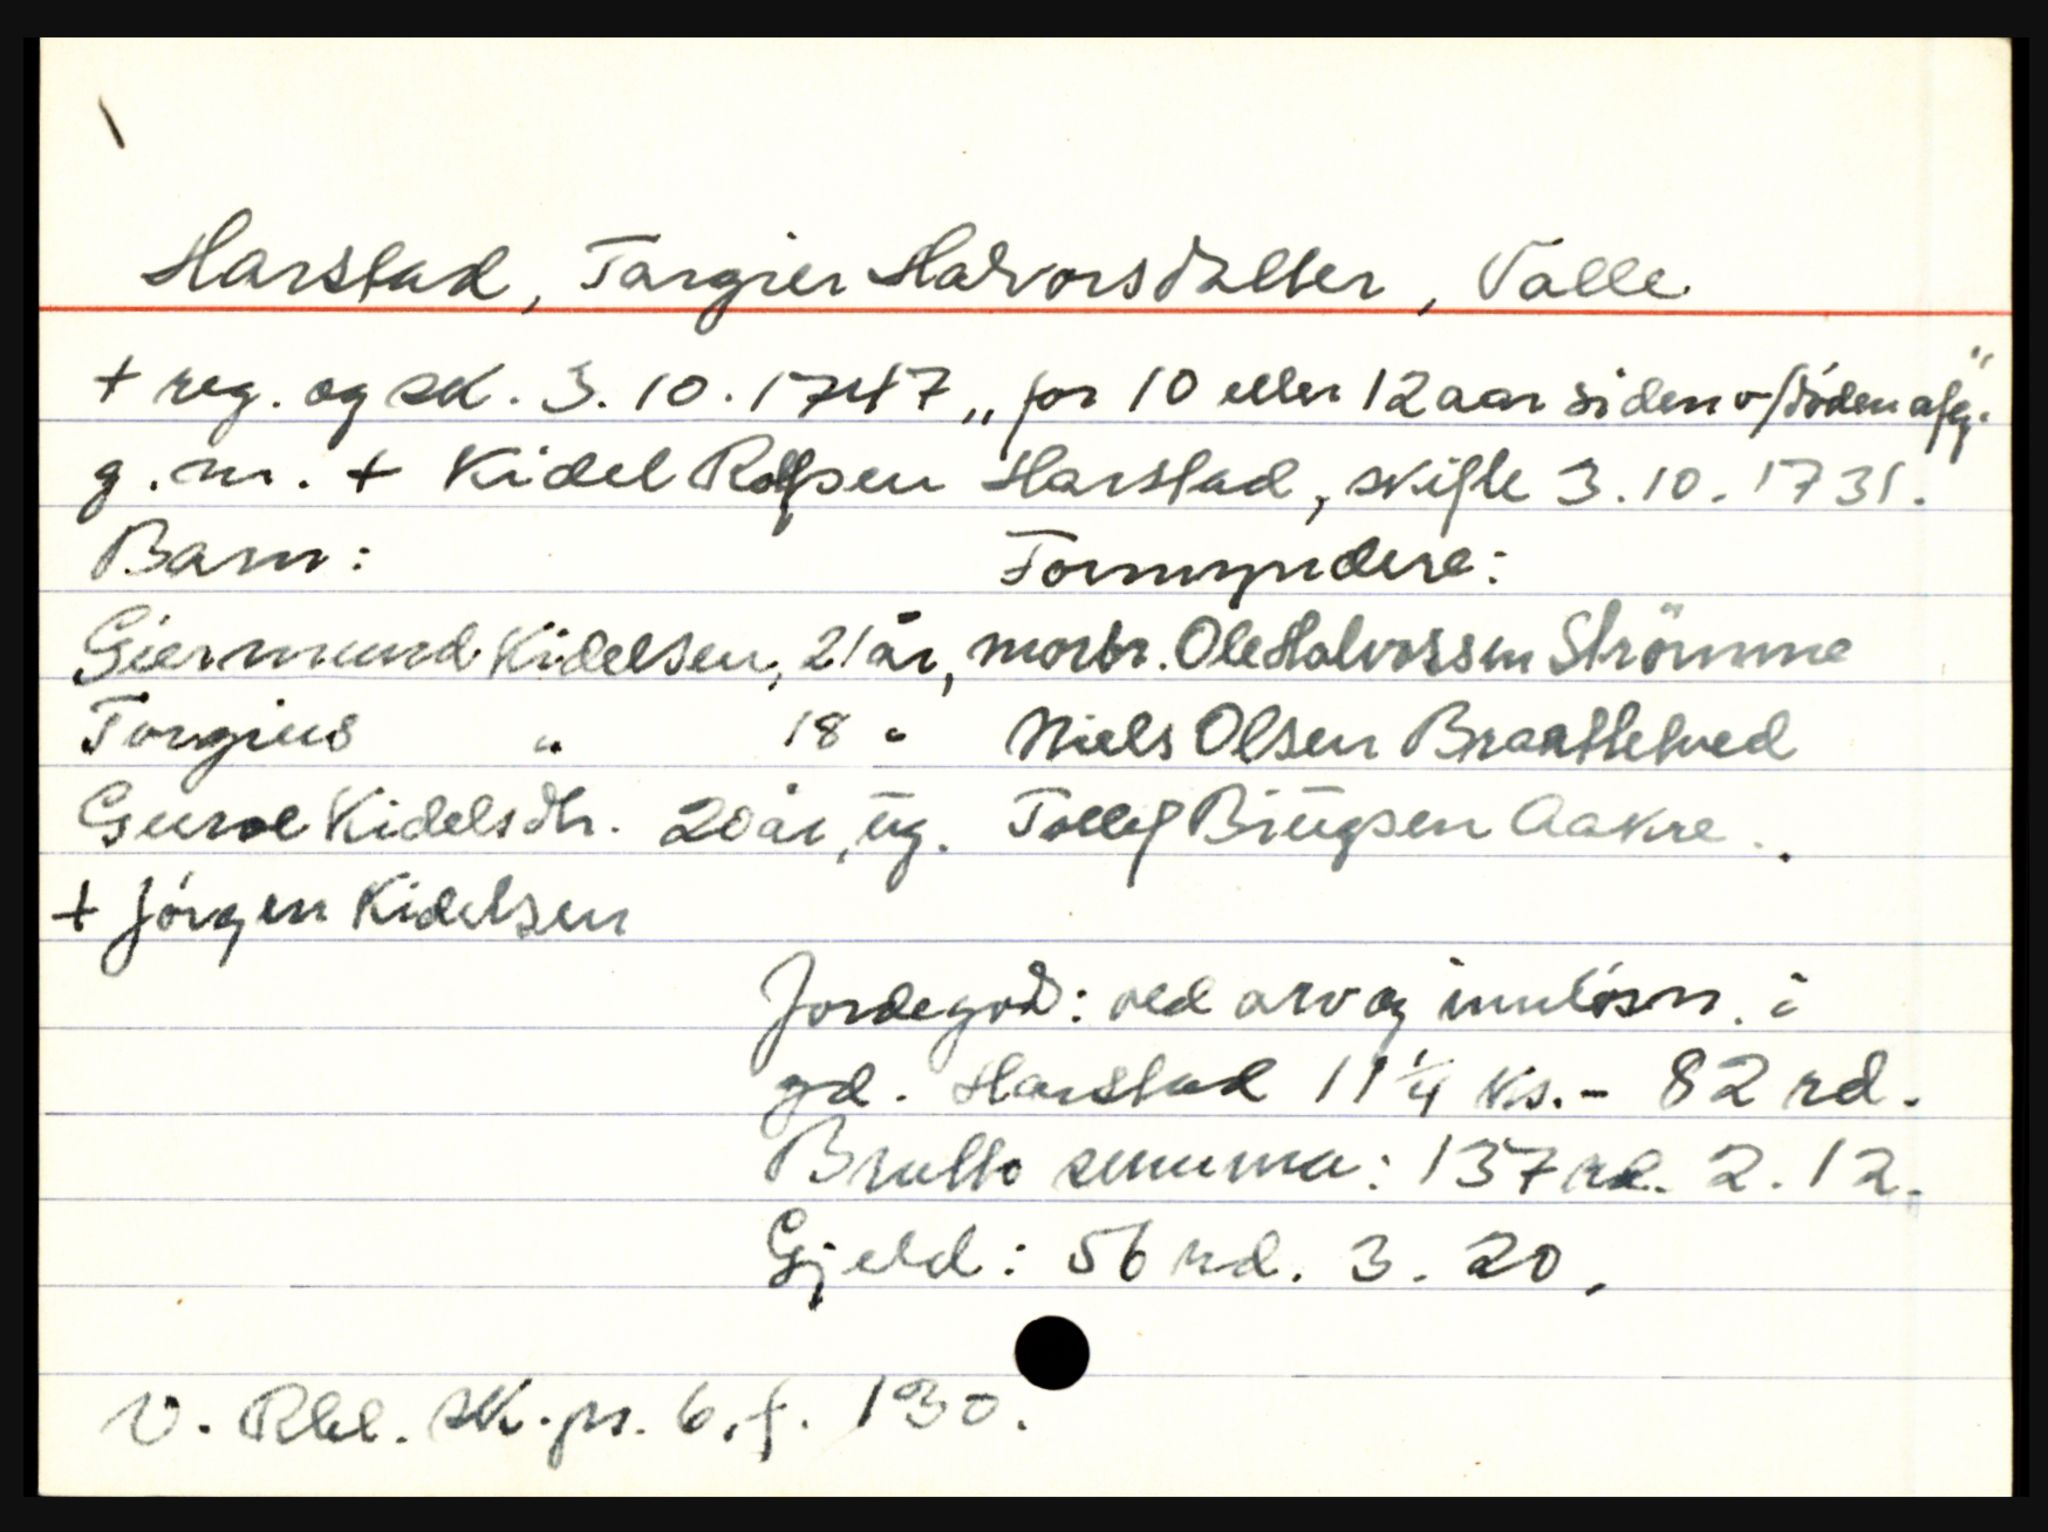 Harstad, Targier Halvorsdatter, Valle
+ reg. og sk. 3.10.1747 „for 10 eller 12 aar siden v/döden afg."
g.m. + Kidel Rolfsen Harstad, skifte 3.10.1731.
Barn: Formyndere:
Giermund Kidelsen, 21 år, morbr. Ole Halvorssen Strömme
Torgius " 18 " Niels Olsen Braattetved
Guroe Kidelsdtr. 20 år, ug. Tollef Biugsen Aakre.
+ Jörgen Kidelsen
Jordegods: ved arv og innlösn. i
gd. Harstad 11 1/4 ks. - 82 rd.
Brutto summa: 137 rd. 2. 12.
Gjeld: 56 rd. 3. 20.
V. Rbl. sk.pr. 6, f. 130.